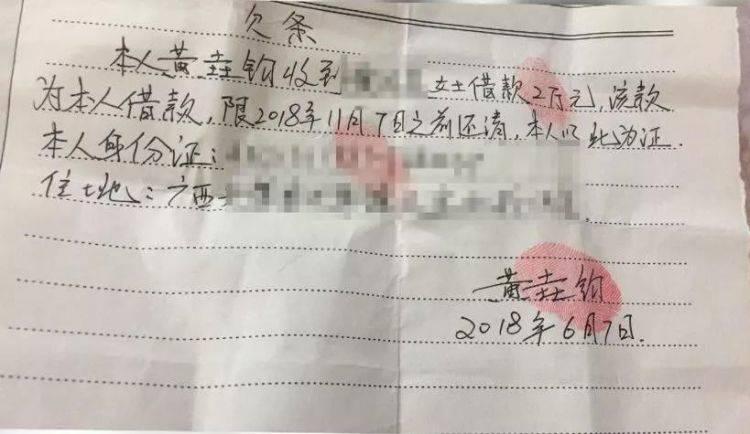 欠条
本人黄壵钧收到 女士借款2万元,该款
为本人借款,限2018年11月7日之前还清,本人以此为证.
本人身份证:
住土地:广西
黄壵钧
2018年6月7日.